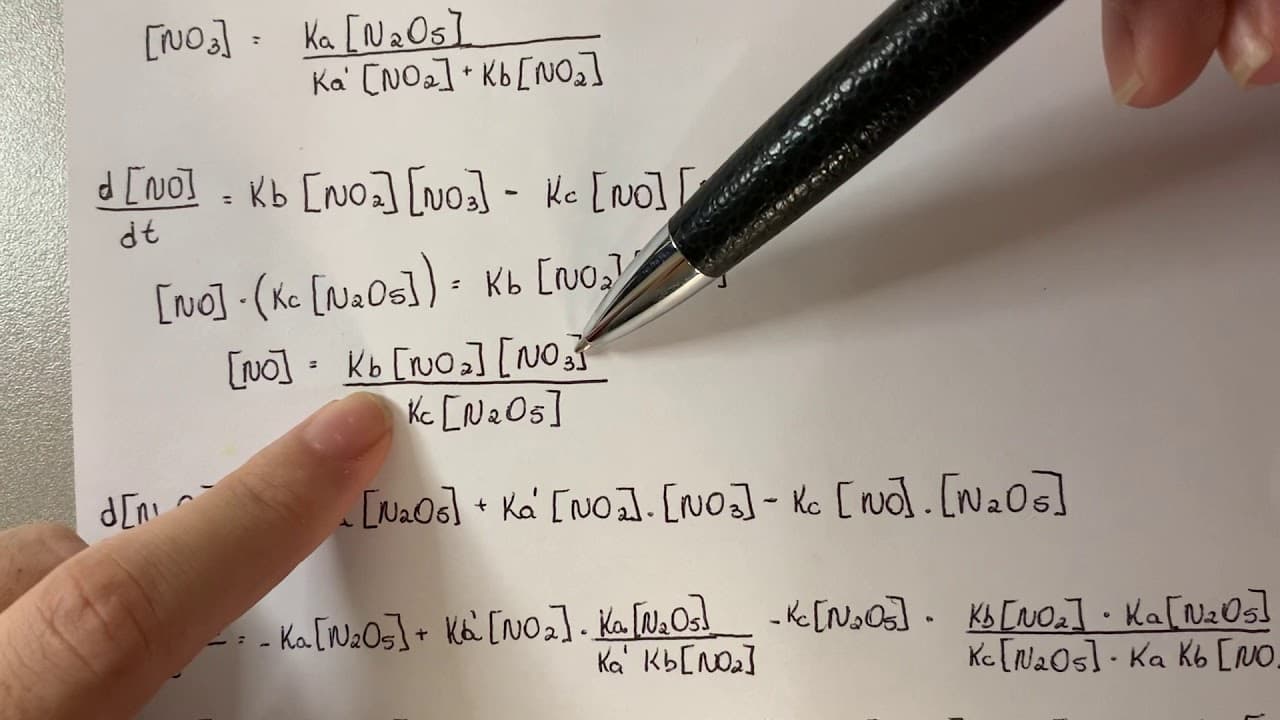 [NO3] = Ka [N2O5]
Ka' [NO2] + Kb [NO2]
d [NO] = Kb [NO2] [NO3] - Kc [NO] [
dt
[NO] · (Kc [N2O5]) = Kb [NO2]
[NO] = Kb [NO2] [NO3]
Kc [N2O5]
[N2O5] + Ka' [NO2] . [NO3] - Kc [NO] . [N2O5]
= - Ka [N2O5] + Kb' [NO2] . Ka [N2O5] - Kc [N2O5] . Kb [NO2] · Ka [N2O5]
Ka' Kb [NO2] Kc [N2O5] · Ka Kb [NO